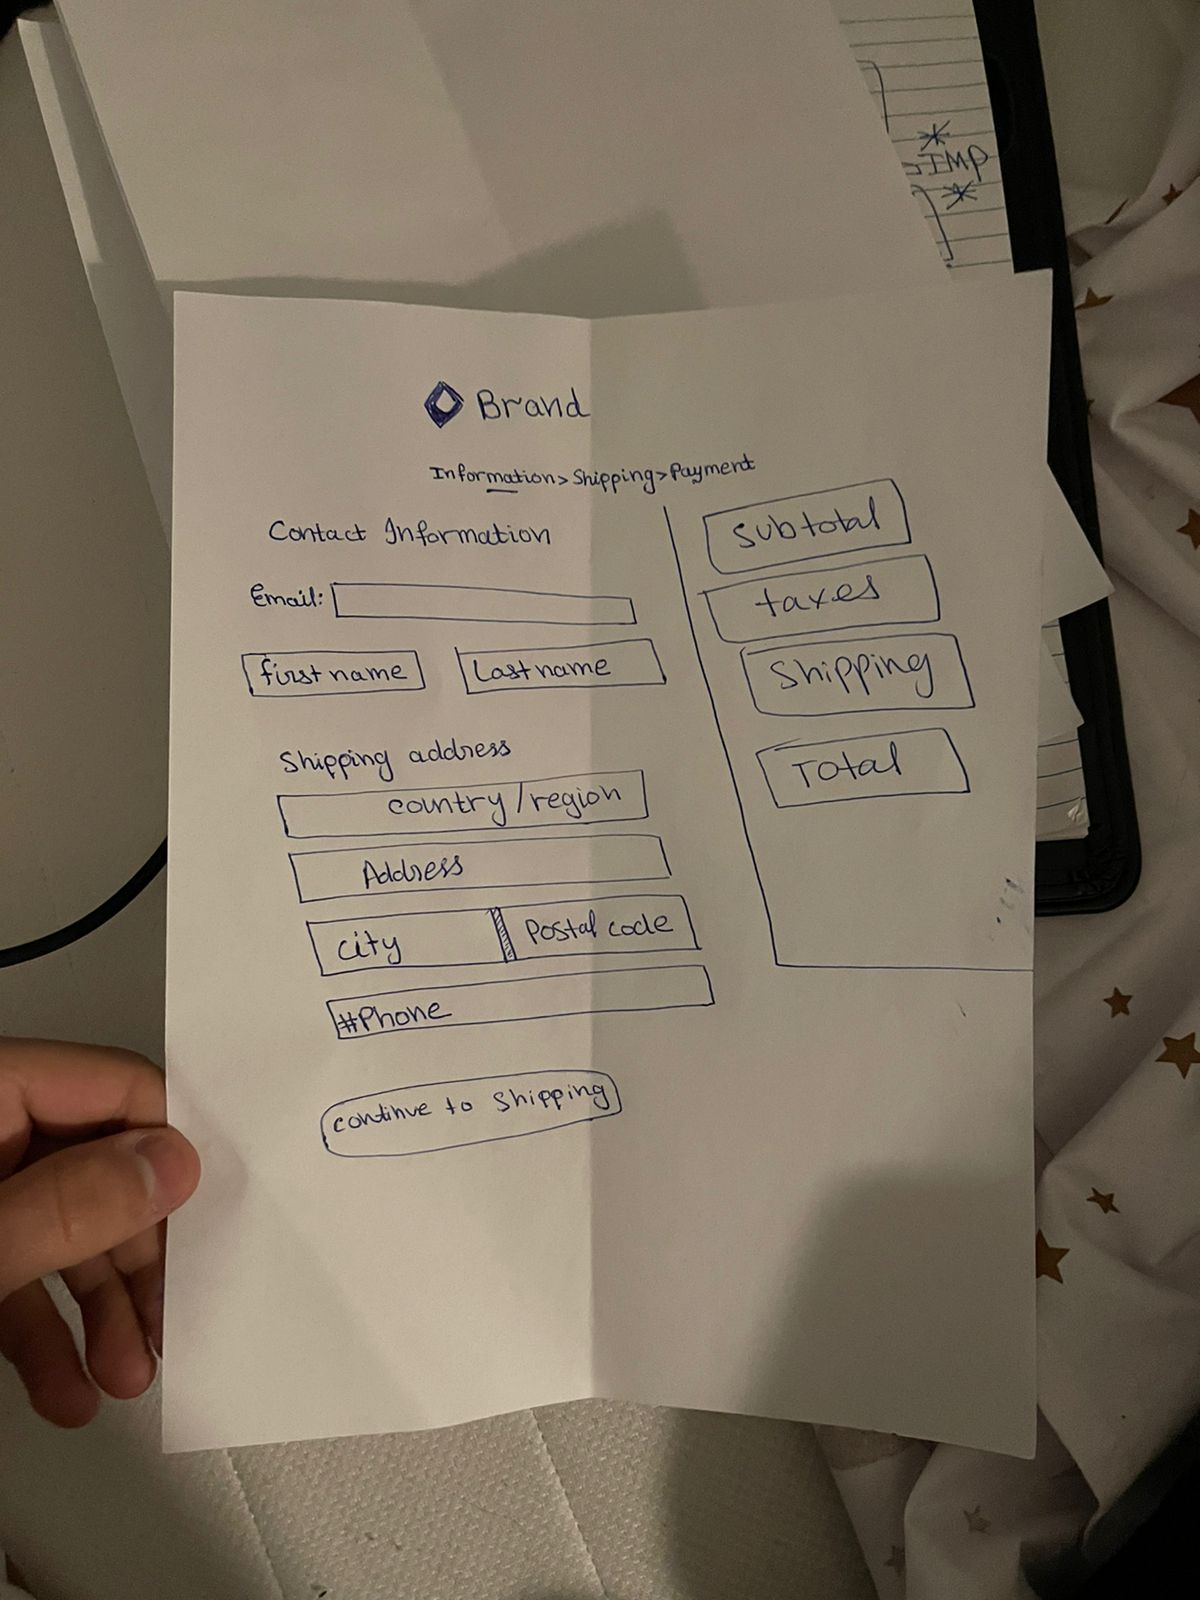 *
IMP
*
Brand
Information > Shipping > Payment
Contact Information
Email:
first name
Last name
Shipping address
country/region
Address
City
Postal code
#Phone
continue to Shipping
Subtotal
taxes
Shipping
Total